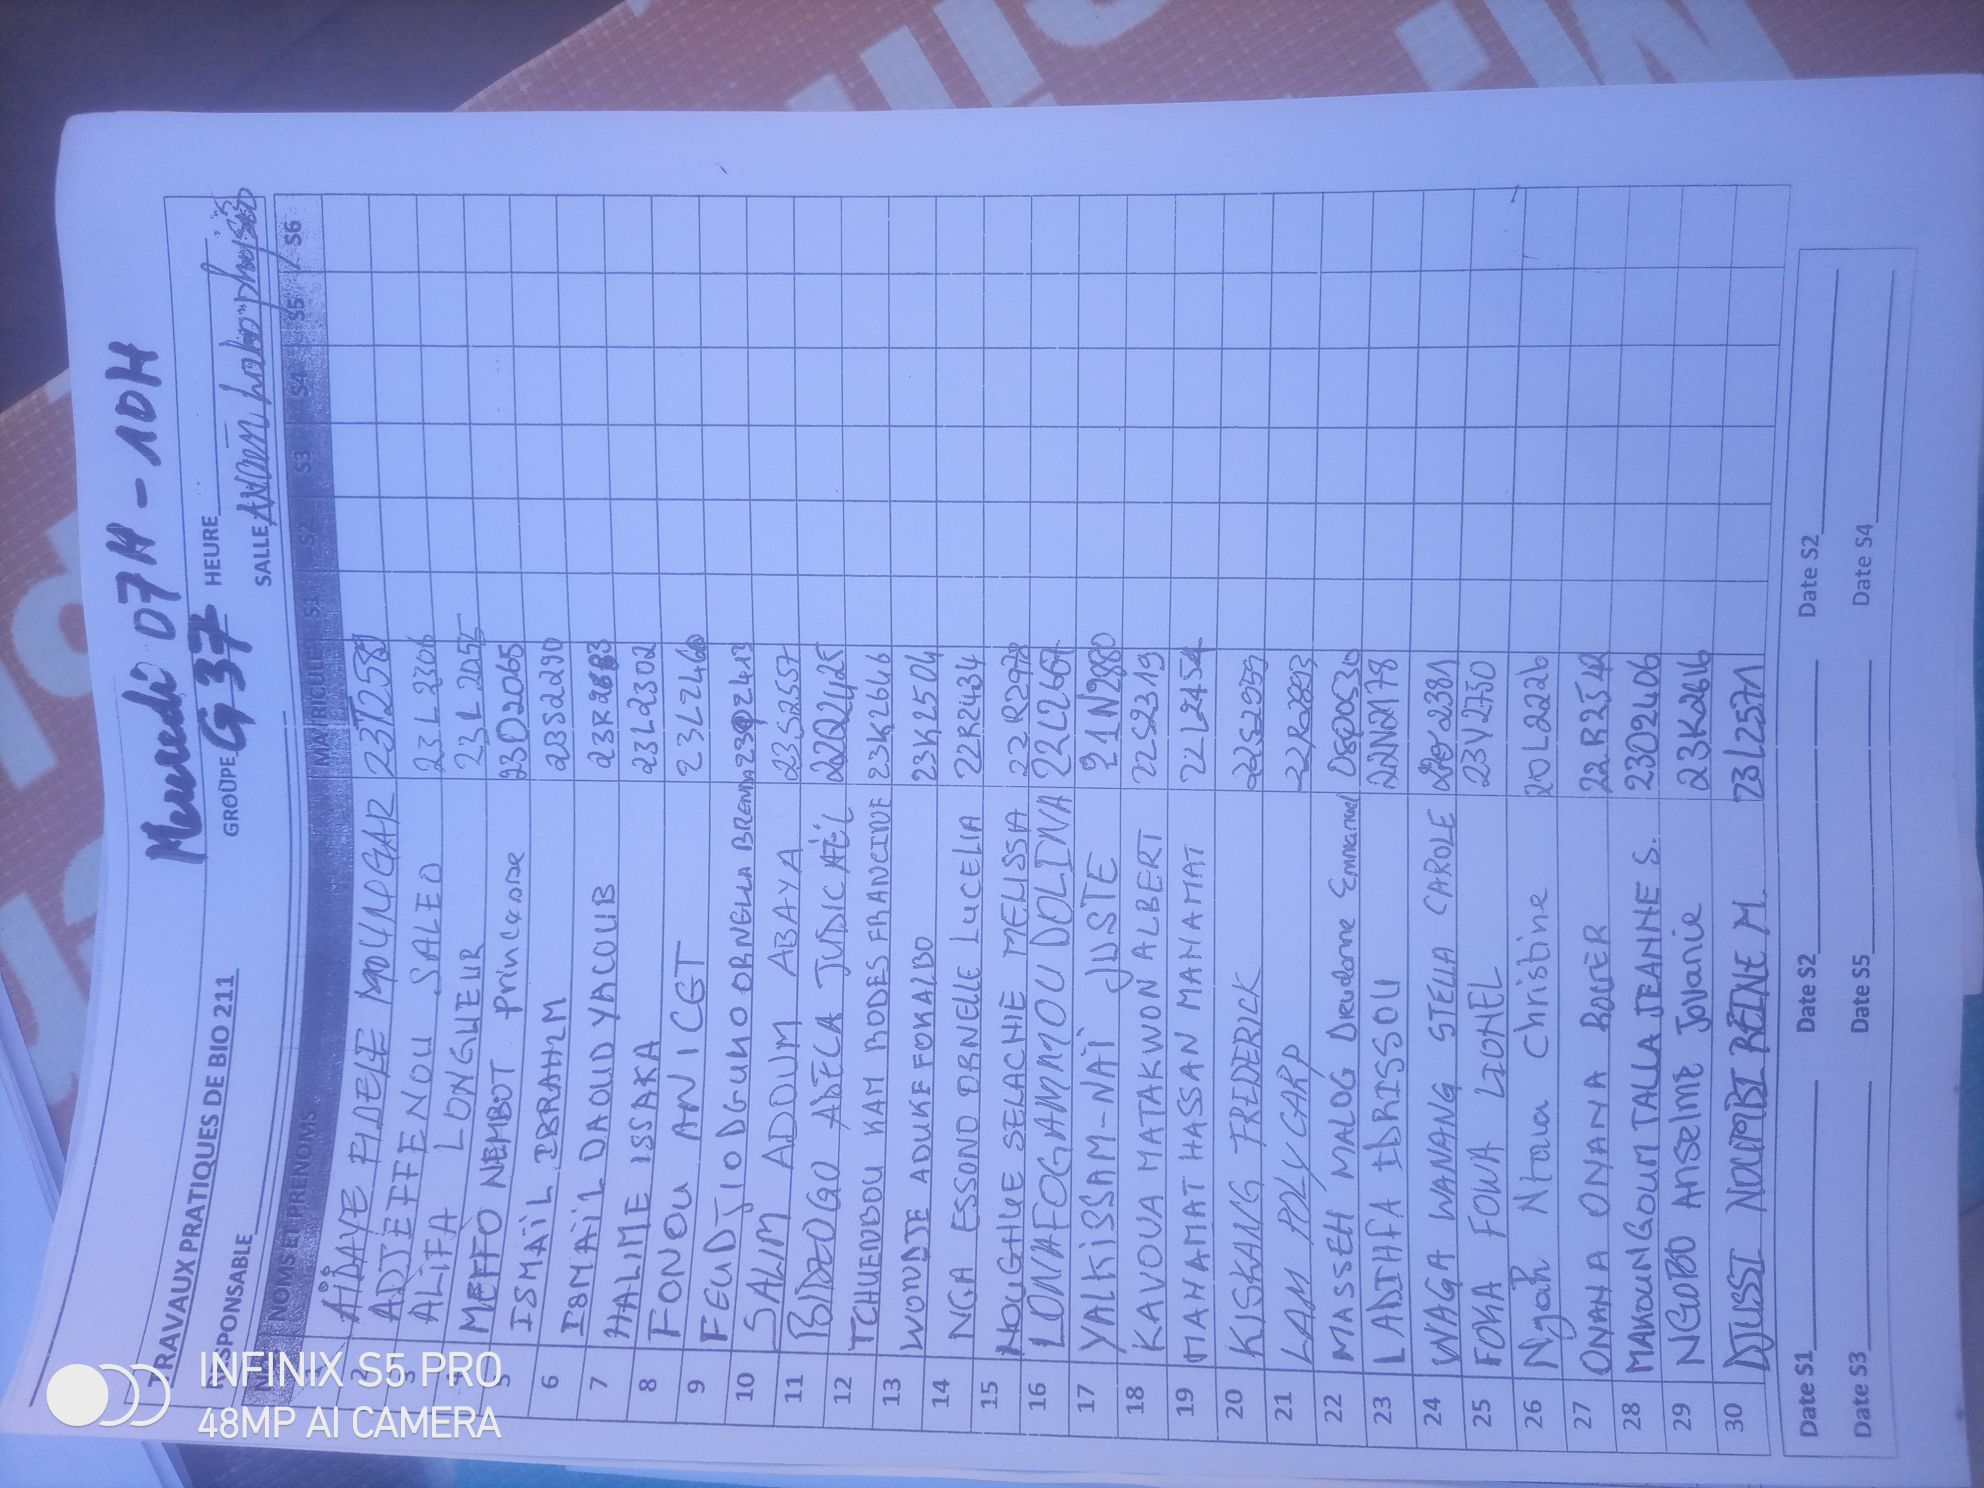 Mercredi 07H - 10H
TRAVAUX PRATIQUES DE BIO 211 GROUPE G 37 HEURE
RESPONSABLE SALLE Ancien labo phy
N° NOMS ET PRENOMS MATRICULE S1 S2 S3 S4 S5 S6
1 AÏDAYE FIDELE MOUNGAR
2 ADJEFFENOU SALEO 23L2306
3 ALIFA LONGUEUR
4 MEFFO NEMBOT princesse 23O2065
5 ISMAÏL IBRAHIM 23S2290
6 ISMAÏL DAOUD YACOUB
7 HALIME ISSAKA 23L2302
8 FONOU ANICGT
9 FEUDJIO DGUKO ORNELLA
10 SALIM ADOUM ABAYA 23S2557
11 BIDZOGO ADECA JUDICAËL 22Q2425
12 TCHUENDOU KAM RODES FRANCINE 23K2646
13 WONDJE ADUKE FOKALBO 23K2504
14 NGA ESSONO ORNELLE LUCELIA 22R2434
15 NOUGHUE SELACHIE MELISSA
16 LONAFOGAMMOU DOLINA
17 YALKISSAM-NAÏ JUSTE 21N2880
18 KAVOUA MATAKWON ALBERT 22S2319
19 MAHAMAT HASSAN MAHAMAT 22L2454
20 KISKANG FREDERICK
21 LAM POLYCARP
22 MASSEH MALOG Dieudonne Emmanuel
23 LADIHFA IDRISSOU
24 WAGA WANANG STELLA CAROLE
25 FOKA FOWA LIONEL 23V2750
26 Ngah Ntawa Christine 20L2226
27 ONANA ONANA ROGER
28 MAKOUNGOUM TALLA JEANNE S. 23O2406
29 NGOPBO Anselme Jovanie 23K2616
30 DJUSSI NOUMBI REINE M. 23L2571
Date S1 Date S2 Date S2
Date S3 Date S5 Date S4
INFINIX S5 PRO
48MP AI CAMERA